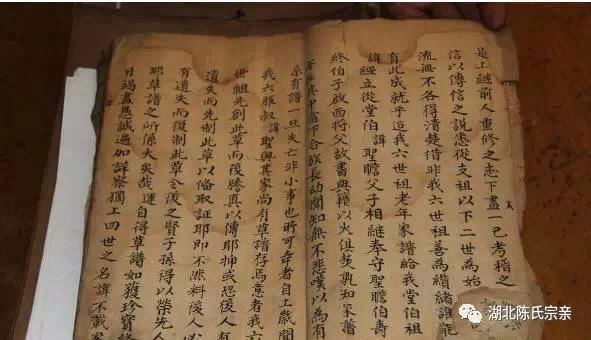 是上繼前人重修之志下盡一己考稽之
信以傳信之說悉從支祖以下二世為始
流無不各得清楚借非我六世祖善為續緒誰能
有此成就乎迨我六世祖老年家譜給我堂伯祖
諱經立從堂伯 諱聖瞻父子相繼奉守聖瞻伯壽
終伯子啟西将父故書典籍以火俱焚孰知家舊
在其中當下合族長幼聞知無不悲嘆以為有
系有譜一旦失亡非小事也所可幸者自上歲聞
我六服叔 諱聖興其家尚有草譜存焉意者我六
世祖先創此草而後謄真以傳耶抑或恐後人有
遺失而先制此草以偹取証耶即不然料後人必
有遺失而復制此草令後之賢子孫得以榮先人
耶草譜之所係大矣哉運自得草譜如獲珍寶終
日竭盡愚誠過加詳察獨上四世之名諱不載家
湖北陈氏宗亲